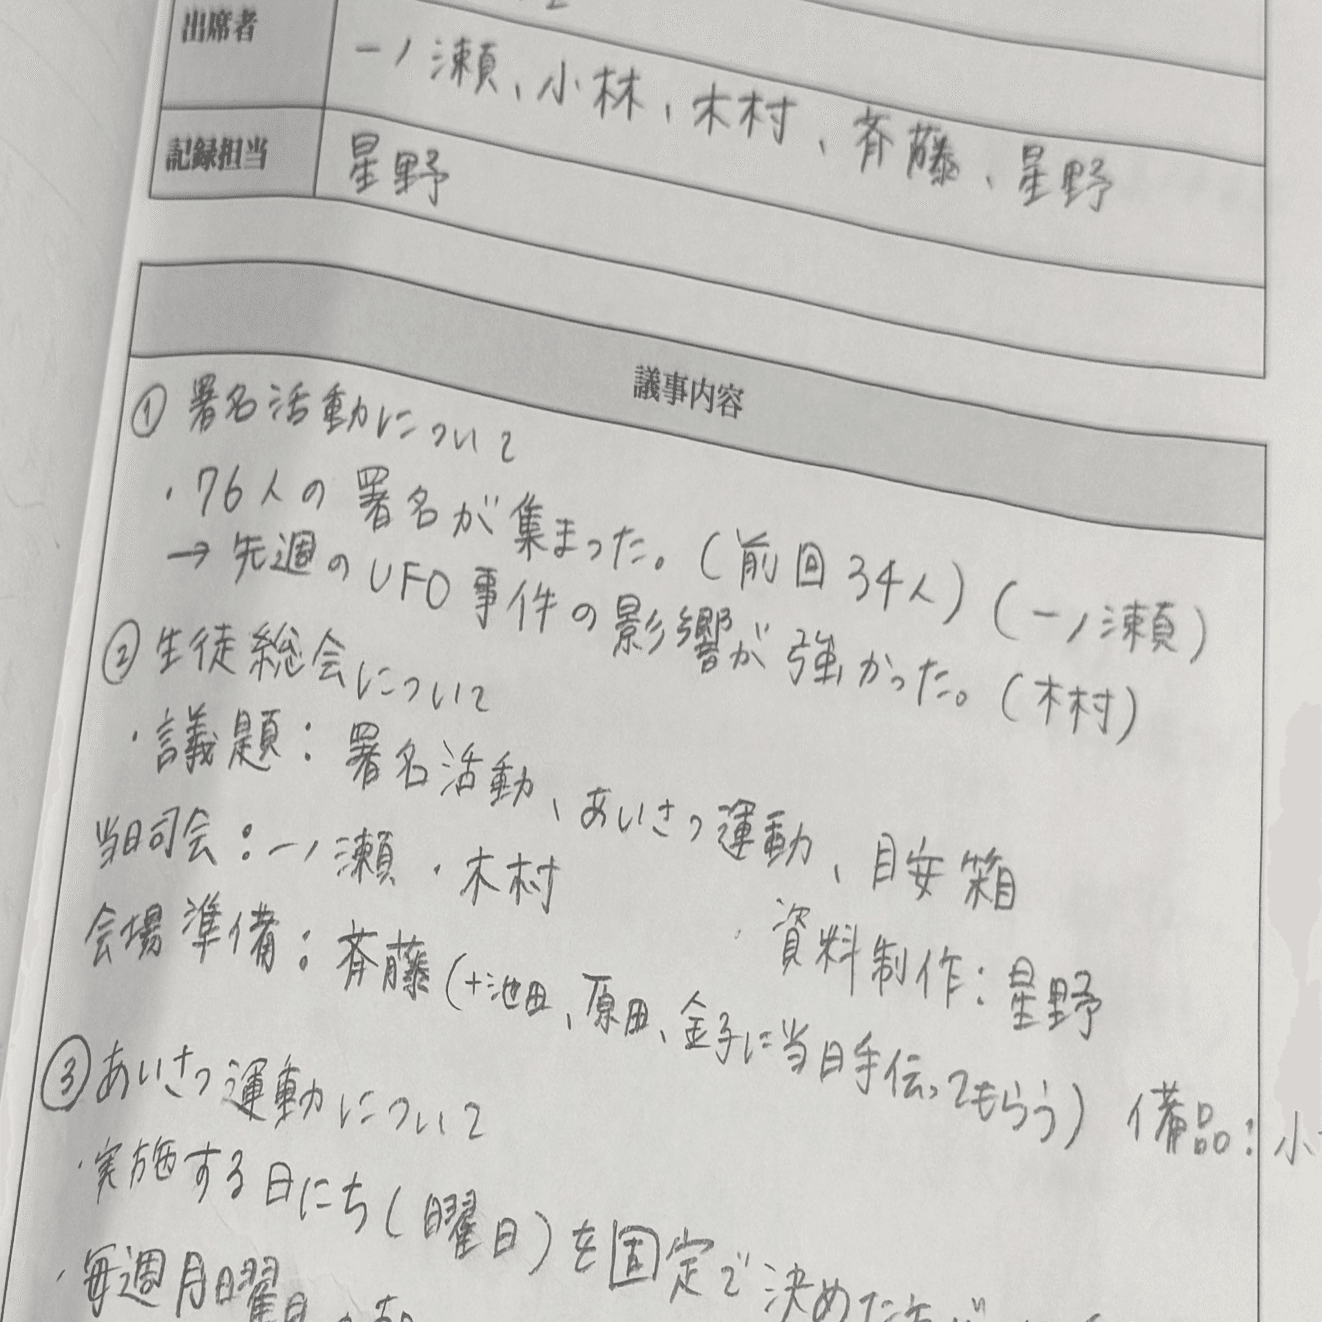 出席者
一ノ瀬、小林、木村、斉藤、星野
記録担当
星野
議事内容
① 署名活動について
・76人の署名が集まった。(前回34人)(一ノ瀬)
→先週のUFO事件の影響が強かった。(木村)
② 生徒総会について
・議題：署名活動、あいさつ運動、目安箱
当日司会：一ノ瀬・木村
資料制作：星野
会場準備：斉藤(+池田、原田、金子に当日手伝ってもらう) 備品：小
③ あいさつ運動について
・実施する日にち(曜日)を固定で決めた方が
・毎週月曜日の朝